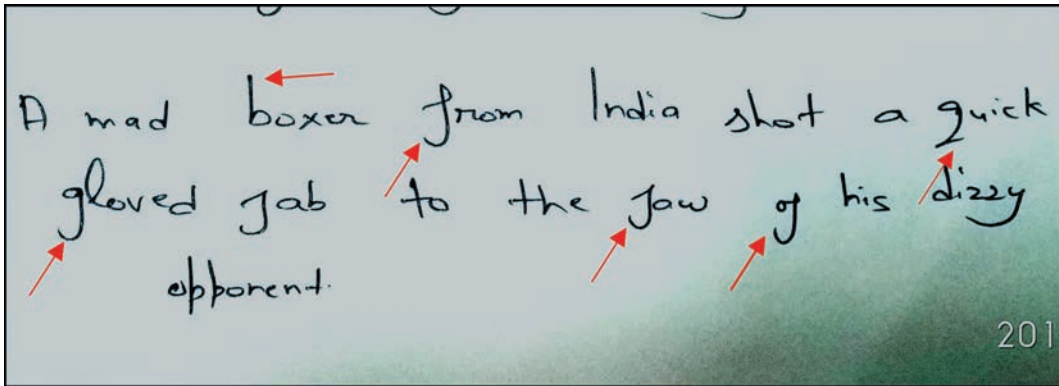 A mad boxer from India shot a quick
gloved jab to the jaw of his dizzy
opponent.
201